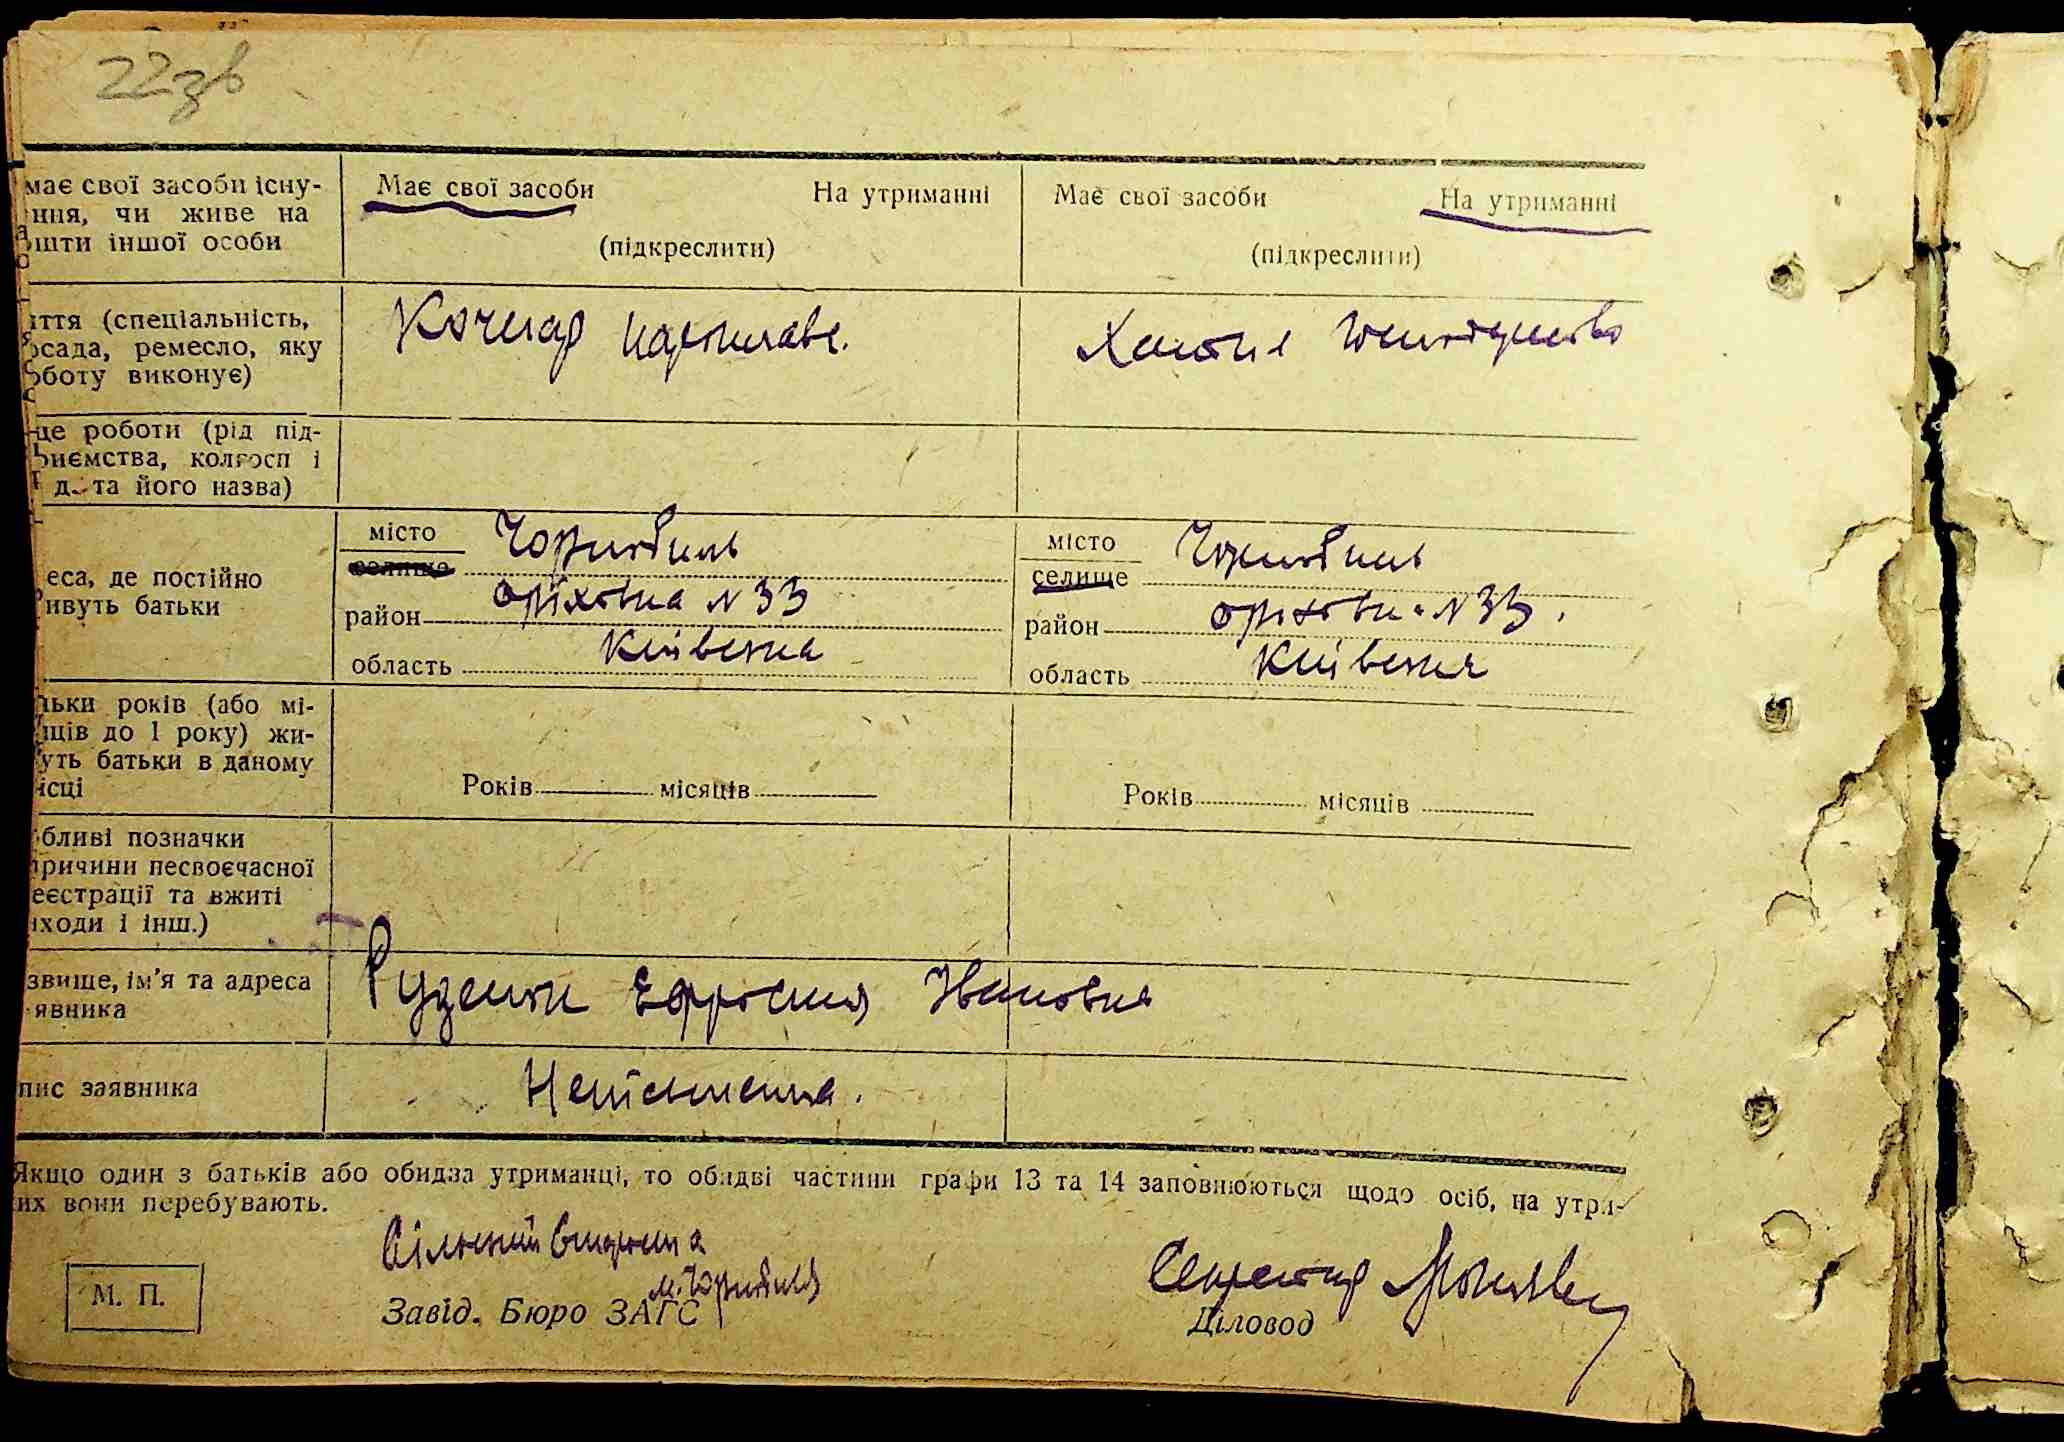 22зв
має свої засоби існу-
ння, чи живе на
ошти іншої особи
Має свої засоби На утриманні
(підкреслити)
Має свої засоби На утриманні
(підкреслити)
яття (спеціальність,
осада, ремесло, яку
оботу виконує)
Кочегар пароплаве.
Хатнє
це роботи (рід під-
риємства, колгосп і
д. та його назва)
еса, де постійно
ивуть батьки
місто Чорнобиль
селище
район оріховка N 33
область Київська
місто Чорнобиль
селище
район оріховка N 33.
область Київська
льки років (або мі-
яців до 1 року) жи-
уть батьки в даному
ісці
Років місяців
Років місяців
обливі позначки
причини несвоєчасної
реєстрації та вжиті
аходи і інш.)
звище, ім'я та адреса
явника
Руденко Ефросиния Ивановна
пис заявника
Неписьменна.
Якщо один з батьків або обидва утриманці, то обидві частини графи 13 та 14 заповнюються щодо осіб, на утри-
их вони перебувають.
м. Чорнобиля
М. П.
Завід. Бюро ЗАГС
Секретар
Діловод